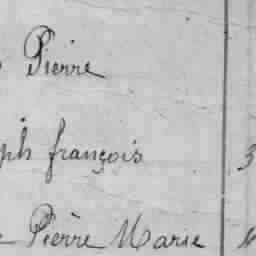 Pierre
ph françois 3
Pièrre Marie